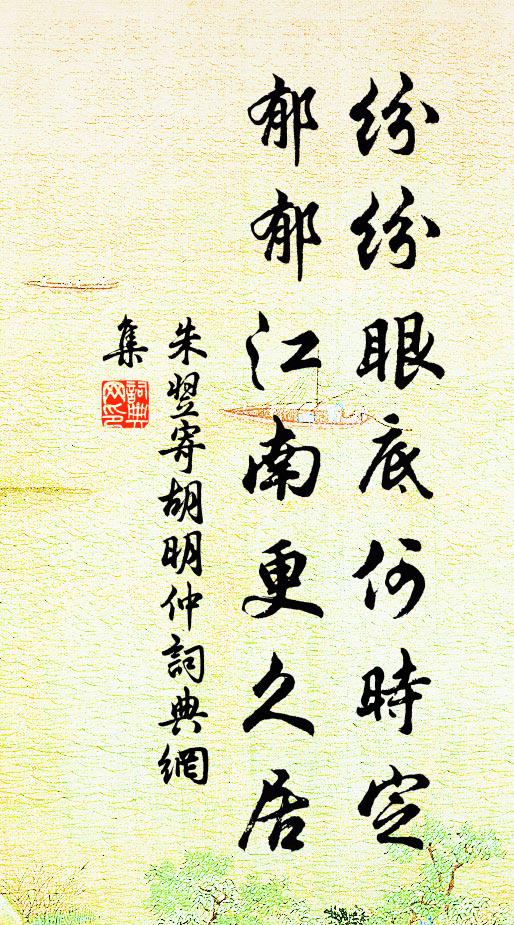 纷纷眼底何時定
郁郁江南更久居
朱翌寄胡明仲詞典網
集
詞典
网印